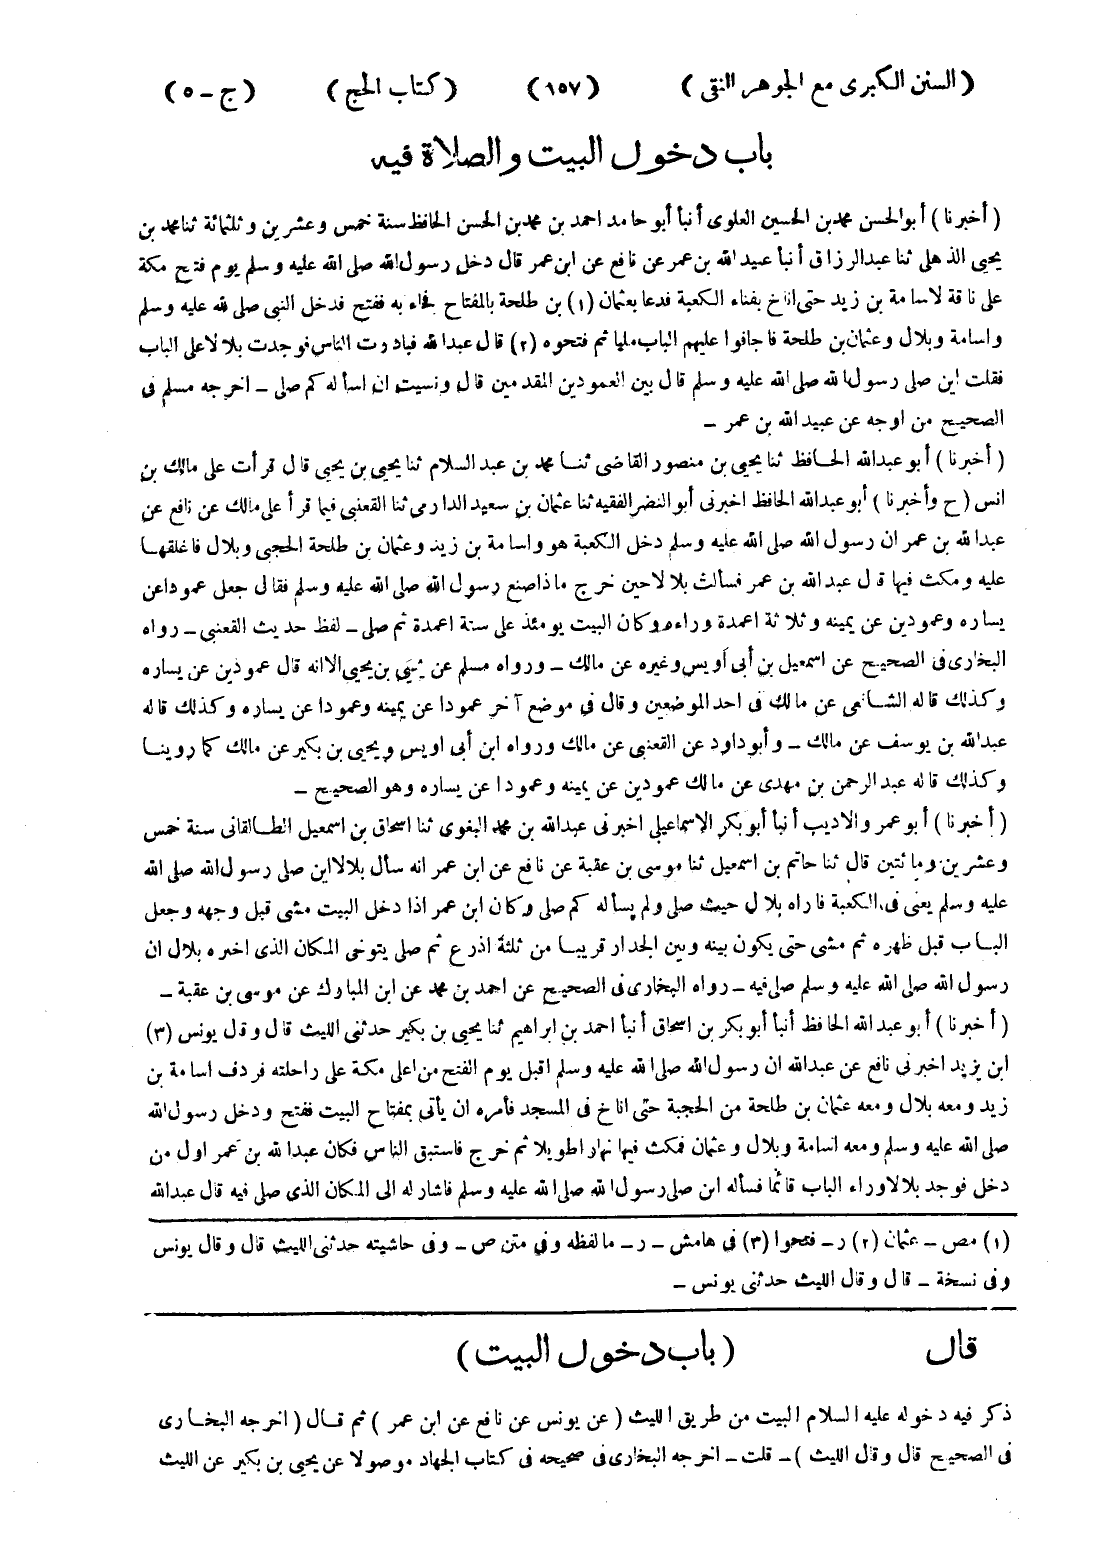 ( السنن الكبرى مع الجوهر النقى ) ( ١٥٧ ) ( كتاب الحج ) ( ج - ٥ )
باب دخول البيت والصلاة فيه
( أخبرنا ) أبو الحسن محمد بن الحسين العلوى أنبأ أبو حامد احمد بن محمد بن الحسن الحافظ سنة خمس وعشرين وثلثمائة ثنا محمد بن
يحيى الذهلى ثنا عبد الرزاق أنبأ عبيد الله بن عمر عن نافع عن ابن عمر قال دخل رسول الله صلى الله عليه وسلم يوم فتح مكة
على ناقة لاسامة بن زيد حتى اناخ بفناء الكعبة فدعا بعثمان (١) بن طلحة بالمفتاح فجاء به ففتح فدخل النبى صلى الله عليه وسلم
واسامة وبلال وعثمان بن طلحة فاجافوا عليهم الباب مليا ثم فتحوه (٢) قال عبد الله فبادرت الناس فوجدت بلالا على الباب
فقلت اين صلى رسول الله صلى الله عليه وسلم قال بين العمودين المقدمين قال ونسيت ان اسأله كم صلى - اخرجه مسلم فى
الصحيح من اوجه عن عبيد الله بن عمر -
( أخبرنا ) أبو عبد الله الحافظ ثنا يحيى بن منصور القاضى ثنا محمد بن عبد السلام ثنا يحيى بن يحيى قال قرأت على مالك بن
انس ( ح وأخبرنا ) أبو عبد الله الحافظ اخبرنى أبو النضر الفقيه ثنا عثمان بن سعيد الدارمى ثنا القعنبى فيما قرأ على مالك عن نافع عن
عبد الله بن عمر ان رسول الله صلى الله عليه وسلم دخل الكعبة هو واسامة بن زيد وعثمان بن طلحة الحجبى وبلال فاغلقها
عليه ومكث فيها قال عبد الله بن عمر فسألت بلالا حين خرج ماذا صنع رسول الله صلى الله عليه وسلم فقال جعل عمودا عن
يساره وعمودين عن يمينه وثلاثة اعمدة وراءه وكان البيت يومئذ على ستة اعمدة ثم صلى - لفظ حديث القعنبى - رواه
البخارى فى الصحيح عن اسمعيل بن أبى أويس وغيره عن مالك - ورواه مسلم عن يحيى بن يحيى الا انه قال عمودين عن يساره
وكذلك قاله الشافعى عن مالك فى احد الموضعين وقال فى موضع آخر عمودا عن يمينه وعمودا عن يساره وكذلك قاله
عبد الله بن يوسف عن مالك - وأبو داود عن القعنبى عن مالك ورواه ابن أبى اويس ويحيى بن بكير عن مالك كما روينا
وكذلك قاله عبد الرحمن بن مهدى عن مالك عمودين عن يمينه وعمودا عن يساره وهو الصحيح -
( أخبرنا ) أبو عمرو الاديب أنبأ أبو بكر الاسماعيلى اخبرنى عبد الله بن محمد البغوى ثنا اسحاق بن اسمعيل الطالقانى سنة خمس
وعشرين ومائتين قال ثنا حاتم بن اسمعيل ثنا موسى بن عقبة عن نافع عن ابن عمر انه سأل بلالا اين صلى رسول الله صلى الله
عليه وسلم يعنى فى الكعبة فاراه بلال حيث صلى ولم يسأله كم صلى وكان ابن عمر اذا دخل البيت مشى قبل وجهه وجعل
الباب قبل ظهره ثم مشى حتى يكون بينه وبين الجدار قريبا من ثلثة اذرع ثم صلى يتوخى المكان الذى اخبره بلال ان
رسول الله صلى الله عليه وسلم صلى فيه - رواه البخارى فى الصحيح عن احمد بن محمد عن ابن المبارك عن موسى بن عقبة -
( أخبرنا ) أبو عبد الله الحافظ أنبأ أبو بكر بن اسحاق أنبأ احمد بن ابراهيم ثنا يحيى بن بكير حدثنى الليث قال وقال يونس (٣)
ابن يزيد اخبرنى نافع عن عبد الله ان رسول الله صلى الله عليه وسلم اقبل يوم الفتح من اعلى مكة على راحلته فردف اسامة بن
زيد ومعه بلال ومعه عثمان بن طلحة من الحجبة حتى اناخ فى المسجد فأمره ان يأتى بمفتاح البيت ففتح ودخل رسول الله
صلى الله عليه وسلم ومعه اسامة وبلال وعثمان فمكث فيها نهارا طويلا ثم خرج فاستبق الناس فكان عبد الله بن عمر اول من
دخل فوجد بلالا وراء الباب قائما فسأله اين صلى رسول الله صلى الله عليه وسلم فاشار له الى المكان الذى صلى فيه قال عبد الله
(١) مص - عثمان (٢) ر - فتحوا (٣) فى هامش - ر - ما لفظه وفى متن ص - وفى حاشيته حدثنى الليث قال وقال يونس
وفى نسخة - قال وقال الليث حدثنى يونس -
قال ( باب دخول البيت )
ذكر فيه دخوله عليه السلام البيت من طريق الليث ( عن يونس عن نافع عن ابن عمر ) ثم قال ( اخرجه البخارى
فى الصحيح قال وقال الليث ) - قلت - اخرجه البخارى فى صحيحه فى كتاب الجهاد موصولا عن يحيى بن بكير عن الليث